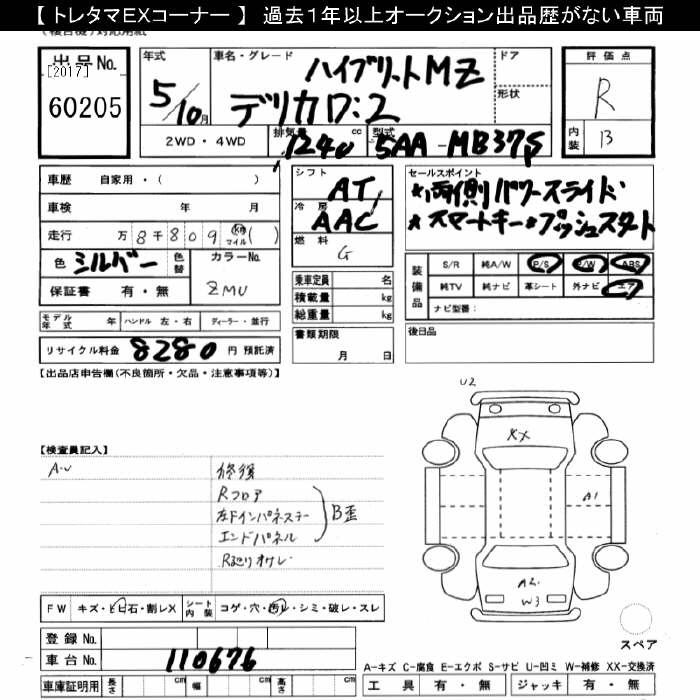 【 トレタマEXコーナー 】 過去1年以上オークション出品歴がない車両
出品No.
[2017]
60205
年式
5/10月
車名・グレード
ハイブリットMZ
デリカD:2
ドア
形状
評価点
R
内装
B
2WD・4WD
排気量
1240
cc
型式
5AA-MB37S
車歴 自家用・( )
車検 年 月
走行 万8千809 km マイル ( )
色 シルバー
色替
カラーNo.
ZMU
保証書 有・無
モデル年式 年 ハンドル 左・右 ディーラー・並行
リサイクル料金 8280 円 預託済
シフト
AT
冷房
AAC
燃料
G
乗車定員 名
積載量 kg
総重量 kg
書類期限
月 日
セールスポイント
*両側パワースライド
*スマートキー*プッシュスタート
装備品
S/R 純A/W P/S P/W ABS
純TV 純ナビ 革シート 外ナビ エアB
ナビ型番:
後日品
【出品店申告欄(不良箇所・欠品・注意事項等)】
【検査員記入】
A・U
修復
Rフロア
左ドインパネステー
エンドパネル
B歪
R廻りオサレ
U2
XX
A1
A2
W3
スペア
FW キズ・ヒビ石・割レX
シート内装 コゲ・穴・汚レ・シミ・破レ・スレ
登録No.
車台No. 110676
車庫証明用 長さ cm 幅 cm 高さ cm
A-キズ C-腐食 E-エクボ S-サビ U-凹ミ W-補修 XX-交換済
工具 有・無 ジャッキ 有・無